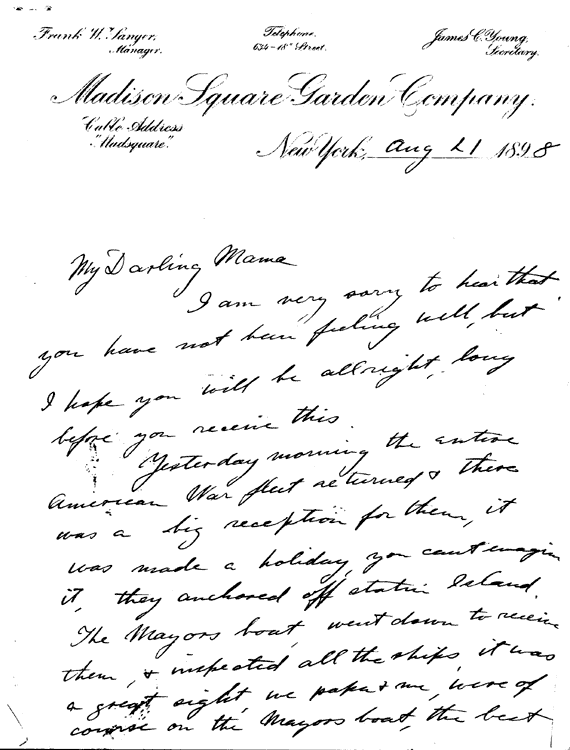 Frank W. Sanger,
Manager.
Telephone.
634-18th Street.
James C. Young,
Secretary.
Madison Square Garden Company.
Cable Address
"Madsquare."
New York, Aug 21 1898
My Darling Mama
I am very sorry to hear that
you have not been feeling well, but
I hope you will be allright, long
before you receive this.
Yesterday morning the entire
American War fleet returned & there
was a big reception for them, it
was made a holiday, you cant imagin
it, they anchored off statin Island.
The Mayors boat, went down to receive
them, & inspected all the ships it was
a great sight, we papa & me, were of
course on the Mayors boat, the best